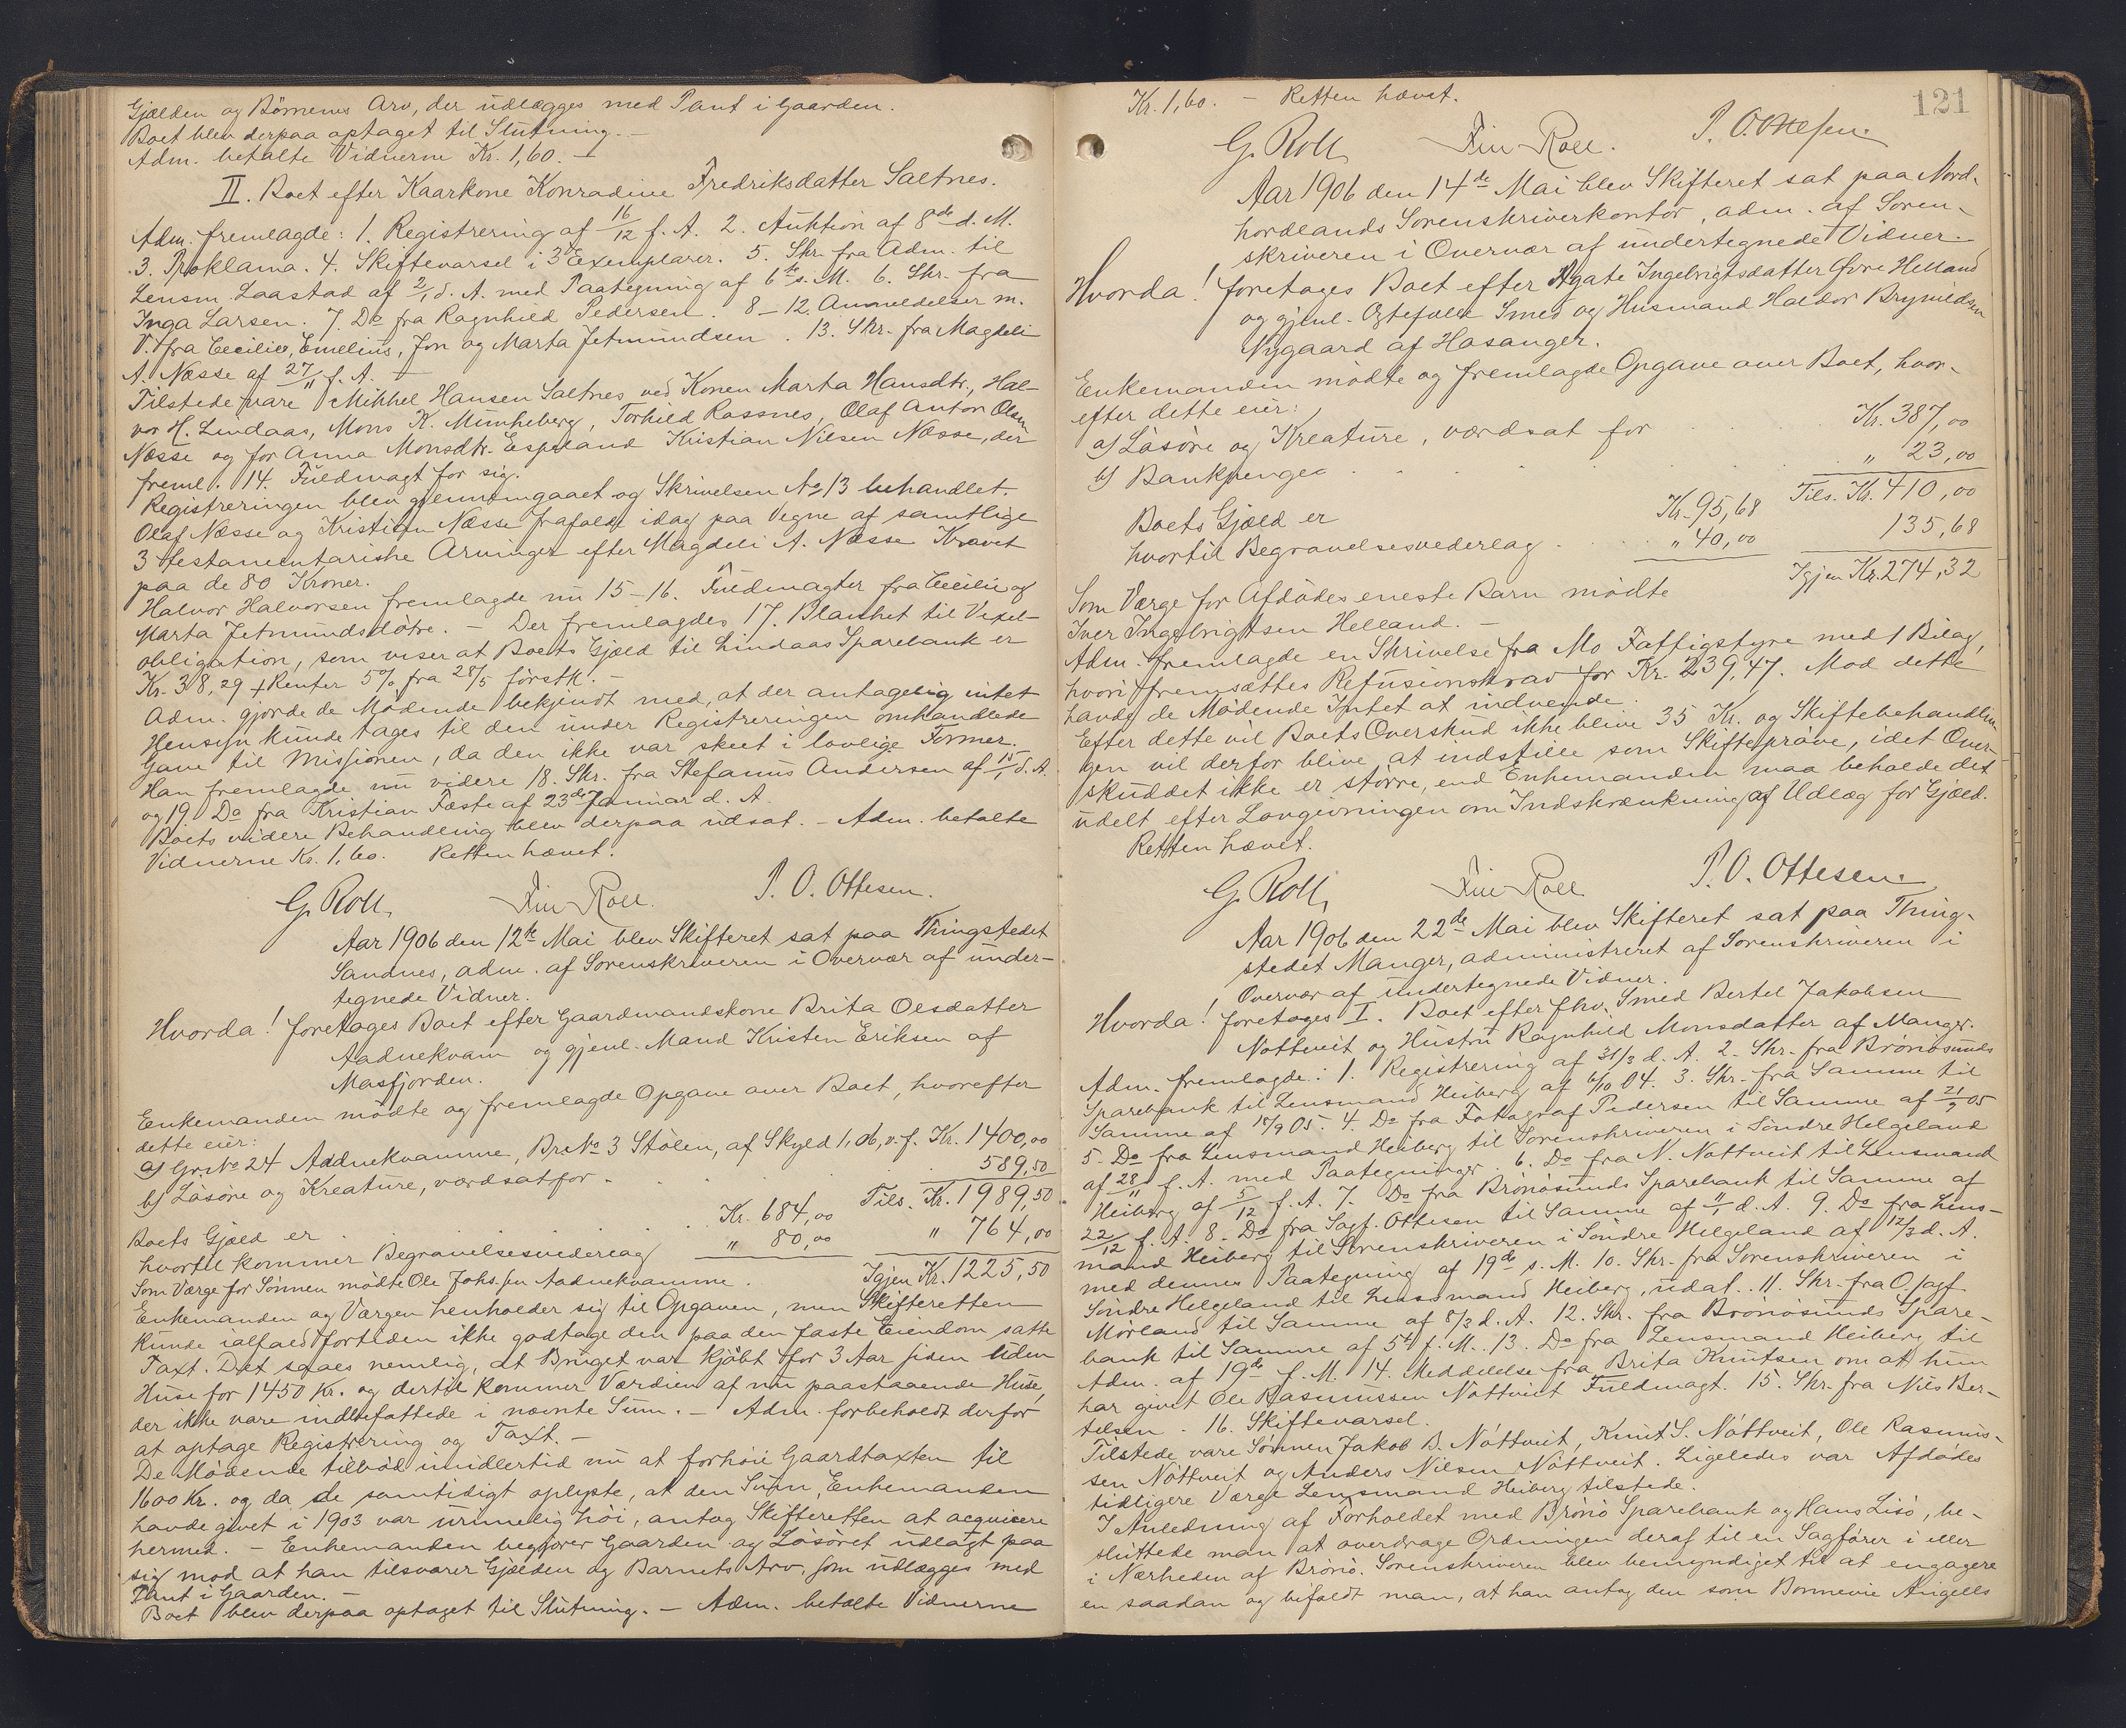 Gjælden og Börnenes Arv, der udlægges med Pant i Gaarden.
Boet blev derpaa optaget til Slutning. —
Adm. betalte Vidnerne Kr. 1,60. —
II. Boet efter Kaarkone Konradine Fredriksdatter Saltnes.
Adm. fremlagde: 1. Registrering af 16/12 f. A. 2. Auktion af 8de d. M.
3. Proklama. 4. Skiftevarsel i 3 Exemplarer. 5. Skr. fra Adm. til
Lensm. Laastad af 2/1 d. A. med Paategning af 6te s. M. 6. Skr. fra
Inga Larsen. 7. Do fra Ragnhild Pedersen. 8–12. Anmeldelser m.
V. fra Cecilie, Emelius, Jon og Marta Jetmundsen. 13. Skr. fra Magdeli
A. Næsse af 27/11 f. A. —
Tilstede vare Mikkel Hansen Saltnes ved Konen Marta Hansdtr., Hal-
vor H. Lindaas, Mons K. Munkeberg, Torkild Rossnes, Olaf Anton Olsen
Næsse og for Anna Monsdtr. Espeland Kristian Nilsen Næsse, der
freml. 14. Fuldmagt for sig.
Registreringen blev gjennemgaaet og Skrivelsen No 13 behandlet.
Olaf Næsse og Kristian Næsse frafaldt idag paa Vegne af samtlige
3 testamentariske Arvinger efter Magdeli A. Næsse Kravet
paa de 80 Kroner.
Halvor Halvorsen fremlagde nu 15–16. Fuldmagter fra Cecilie og
Marta Jetmundsdötre. — Der fremlagdes 17. Blanket til Vexel-
obligation, som viser at Boets Gjæld til Lindaas Sparebank er
Kr. 38,29 + Renter 5% fra 28/5 förstk. —
Adm. gjorde de Mödende bekjendt med, at der antagelig intet
Hensyn kunde tages til den under Registreringen omhandlede
Gave til Missionen, da den ikke var skeet i lovlige Former.
Han fremlagde nu videre 18. Skr. fra Stefanus Andersen af 15/1 d. A.
og 19. Do fra Kristian Fæste af 23de Januar d. A.
Boets videre Behandling blev derpaa udsat. — Adm. betalte
Vidnerne Kr. 1,60. Retten hævet.
G. Roll, Finn Roll. P. O. Ottesen.
Aar 1906 den 12te Mai blev Skifteret sat paa Thingstedet
Sandnes, adm. af Sorenskriveren i Overvær af under-
tegnede Vidner.
Hvorda! foretages Boet efter Gaardmandskone Brita Olsdatter
Aadnekvam og gjenl. Mand Kristen Eriksen af
Masfjorden.
Enkemanden mödte og fremlagde Opgave over Boet, hvorefter
dette eier:
a) Gr. No 24 Aadnekvamme, Br. No 3 Stölen, af Skyld 1,06, v. f. Kr. 1400,00
b) Lösöre og Kreature, værdsat for . . . 589,50
Tils. Kr. 1989,50
Boets Gjæld er . . . Kr. 684,00
hvortil kommer Begravelsesvederlag " 80,00 " 764,00
Som Værge for Sönnen mödte Ole Johs.sen Aadnekvamme. Igjen Kr. 1225,50
Enkemanden og Værgen henholder sig til Opgaven, men Skifteretten
kunde ialfald fortiden ikke godtage den paa den faste Eiendom satte
Taxt. Det sagdes nemlig, at Bruget var kjöbt for 3 Aar siden uden
Huse for 1450 Kr. og dertil kommer Værdien af nu paastaaende Huse,
der ikke vare indbefattede i nævnte Sum. — Adm. forbeholdt derfor
at optage Registrering og Taxt. —
De Mödende tilböd imidlertid nu at forhöie Gaardtaxten til
1600 Kr. og da de samtidigt oplyste, at den Sum, Enkemanden
havde givet i 1903 var urimelig höi, antog Skifteretten at acquiescere
hermed. — Enkemanden begjærer Gaarden og Lösöret udlagt paa
sig mod at han tilsvarer Gjælden og Barnets Arv, som udlægges med
Pant i Gaarden. —
Boet blev derpaa optaget til Slutning. — Adm. betalte Vidnerne
121
Kr. 1,60. — Retten hævet.
G. Roll, Finn Roll. P. O. Ottesen.
Aar 1906 den 14de Mai blev Skifteret sat paa Nord-
hordlands Sorenskriverkontor, adm. af Soren-
skriveren i Overvær af undertegnede Vidner.
Hvorda! foretages Boet efter Agate Ingebrigtsdatter Övre Helland
og gjenl. Ögtefælle Smed og Husmand Haldor Brynildsen
Nygaard af Hosanger.
Enkemanden mödte og fremlagde Opgave over Boet, hvor-
efter dette eier:
a) Lösöre og Kreature, værdsat for . . . Kr. 387,00
b) Bankpenge . . . " 23,00
Tils. Kr. 410,00
Boets Gjæld er Kr. 95,68
hvortil Begravelsesvederlag . . . " 40,00 135,68
Igjen Kr. 274,32
Som Værge for Afdödes eneste Barn mödte
Iver Ingebrigtsen Helland. —
Adm. fremlagde en Skrivelse fra Mo Fattigstyre med 1 Bilag,
hvori fremsættes Refusionskrav for Kr. 239,47. Mod dette
havde de Mödende Intet at indvende.
Efter dette vil Boets Overskud ikke blive 35 Kr. og Skiftebehandlin-
gen vil derfor blive at indstille som Skifteprøve, idet Over-
skuddet ikke er større, end Enkemanden maa beholde det
udelt efter Lovgivningen om Indskrænkning af Udlæg for Gjæld.
Retten hævet.
G. Roll, Finn Roll P. O. Ottesen.
Aar 1906 den 22de Mai blev Skifteret sat paa Thing-
stedet Manger, administreret af Sorenskriveren i
Overvær af undertegnede Vidner.
Hvorda! foretages I. Boet efter fhv. Smed Bertel Jakobsen
Nöttveit og Hustru Ragnhild Monsdatter af Manger.
Adm. fremlagde: 1. Registrering af 31/3 d. A. 2. Skr. fra Brönösunds
Sparebank til Lensmand Heiberg af 6/10 04. 3. Skr. fra Samme til
Samme af 15/9 05. 4. Do fra Fotograf Pedersen til Samme af 21/9 05
5. Do fra Lensmand Heiberg til Sorenskriveren i Söndre Helgeland
af 28/11 f. A. med Paategninger. 6. Do fra N. Nöttveit til Lensmand
Heiberg af 5/12 f. A. 7. Do fra Brönösunds Sparebank til Samme af
22/12 f. A. 8. Do fra Sagf. Ottesen til Samme af 11/1 d. A. 9. Do fra Lens-
mand Heiberg til Sorenskriveren i Söndre Helgeland af 12/3 d. A.
med dennes Paategning af 19de s. M. 10. Skr. fra Sorenskriveren i
Söndre Helgeland til Lensmand Heiberg, udat. 11. Skr. fra O.sagf.
Mörland til Samme af 8/3 d. A. 12. Skr. fra Brönösunds Spare-
bank til Samme af 5te f. M. 13. Do fra Lensmand Heiberg til
Adm. af 19de f. M. 14. Meddelelse fra Brita Knutsen om at hun
har givet Ole Rasmussen Nöttveit Fuldmagt. 15. Skr. fra Nils Ber-
telsen. 16. Skiftevarsel.
Tilstede vare Sönnen Jakob B. Nöttveit, Knut S. Nöttveit, Ole Rasmus-
sen Nöttveit og Anders Nilsen Nöttveit. Ligeledes var Afdödes
tidligere Værge Lensmand Heiberg tilstede.
I Anledning af Forholdet med Brönö Sparebank og Hans Lisö, be-
sluttede man at overdrage Ordningen deraf til en Sagförer i eller
i Nærheden af Brönö. Sorenskriveren blev bemyndiget til at engagere
en saadan og bifaldt man, at han antog den som Bonnevie Angells